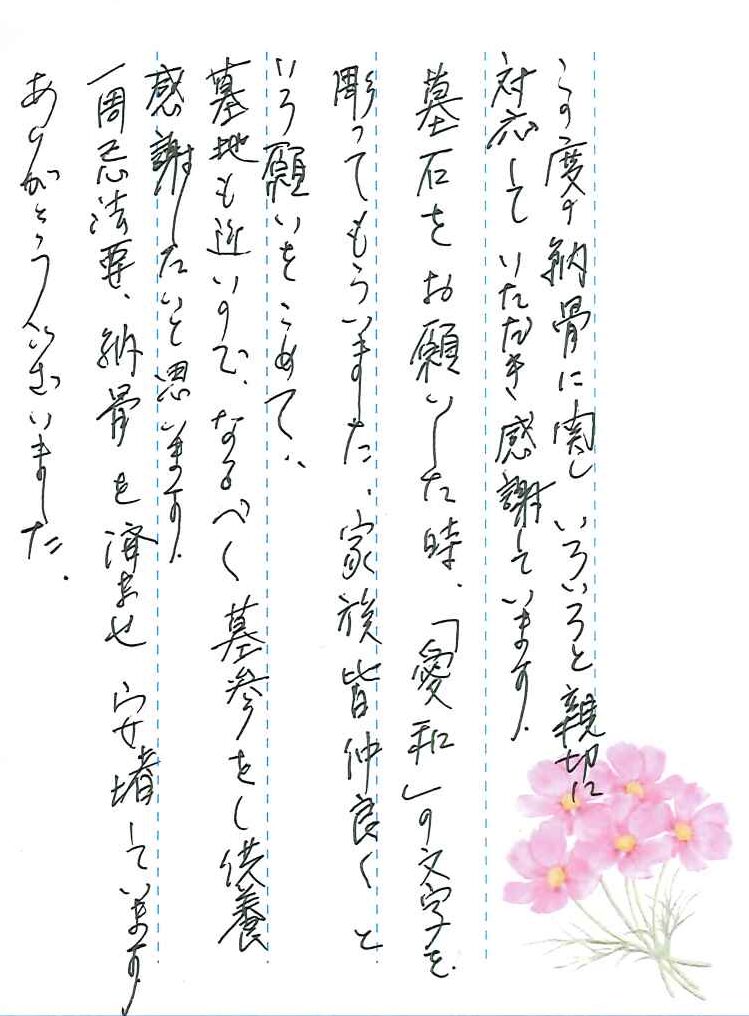 この度の納骨に関し いろいろと親切に
対応して いただき感謝しています.
墓石をお願いした時、「愛和」の文字を
彫ってもらいました、家族皆仲良くと
いう願いをこめて、、
墓地も近いので、なるべく墓参をし供養
感謝したいと思います.
一周忌法要、納骨を済ませ 安堵しています.
ありがとうございました.